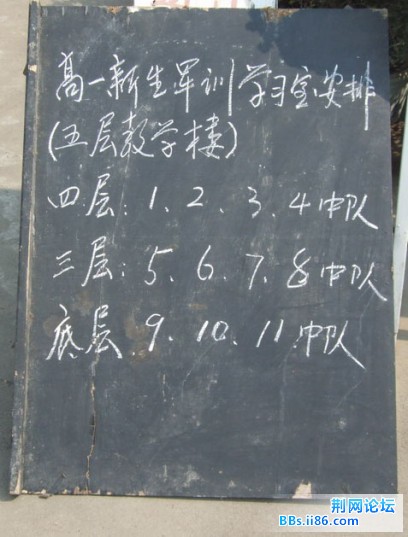 高一新生军训学习室安排
(五层教学楼)
四层:1、2、3、4中队
三层:5、6、7、8中队
底层:9、10、11中队
荆网论坛
BBs.ii86.com